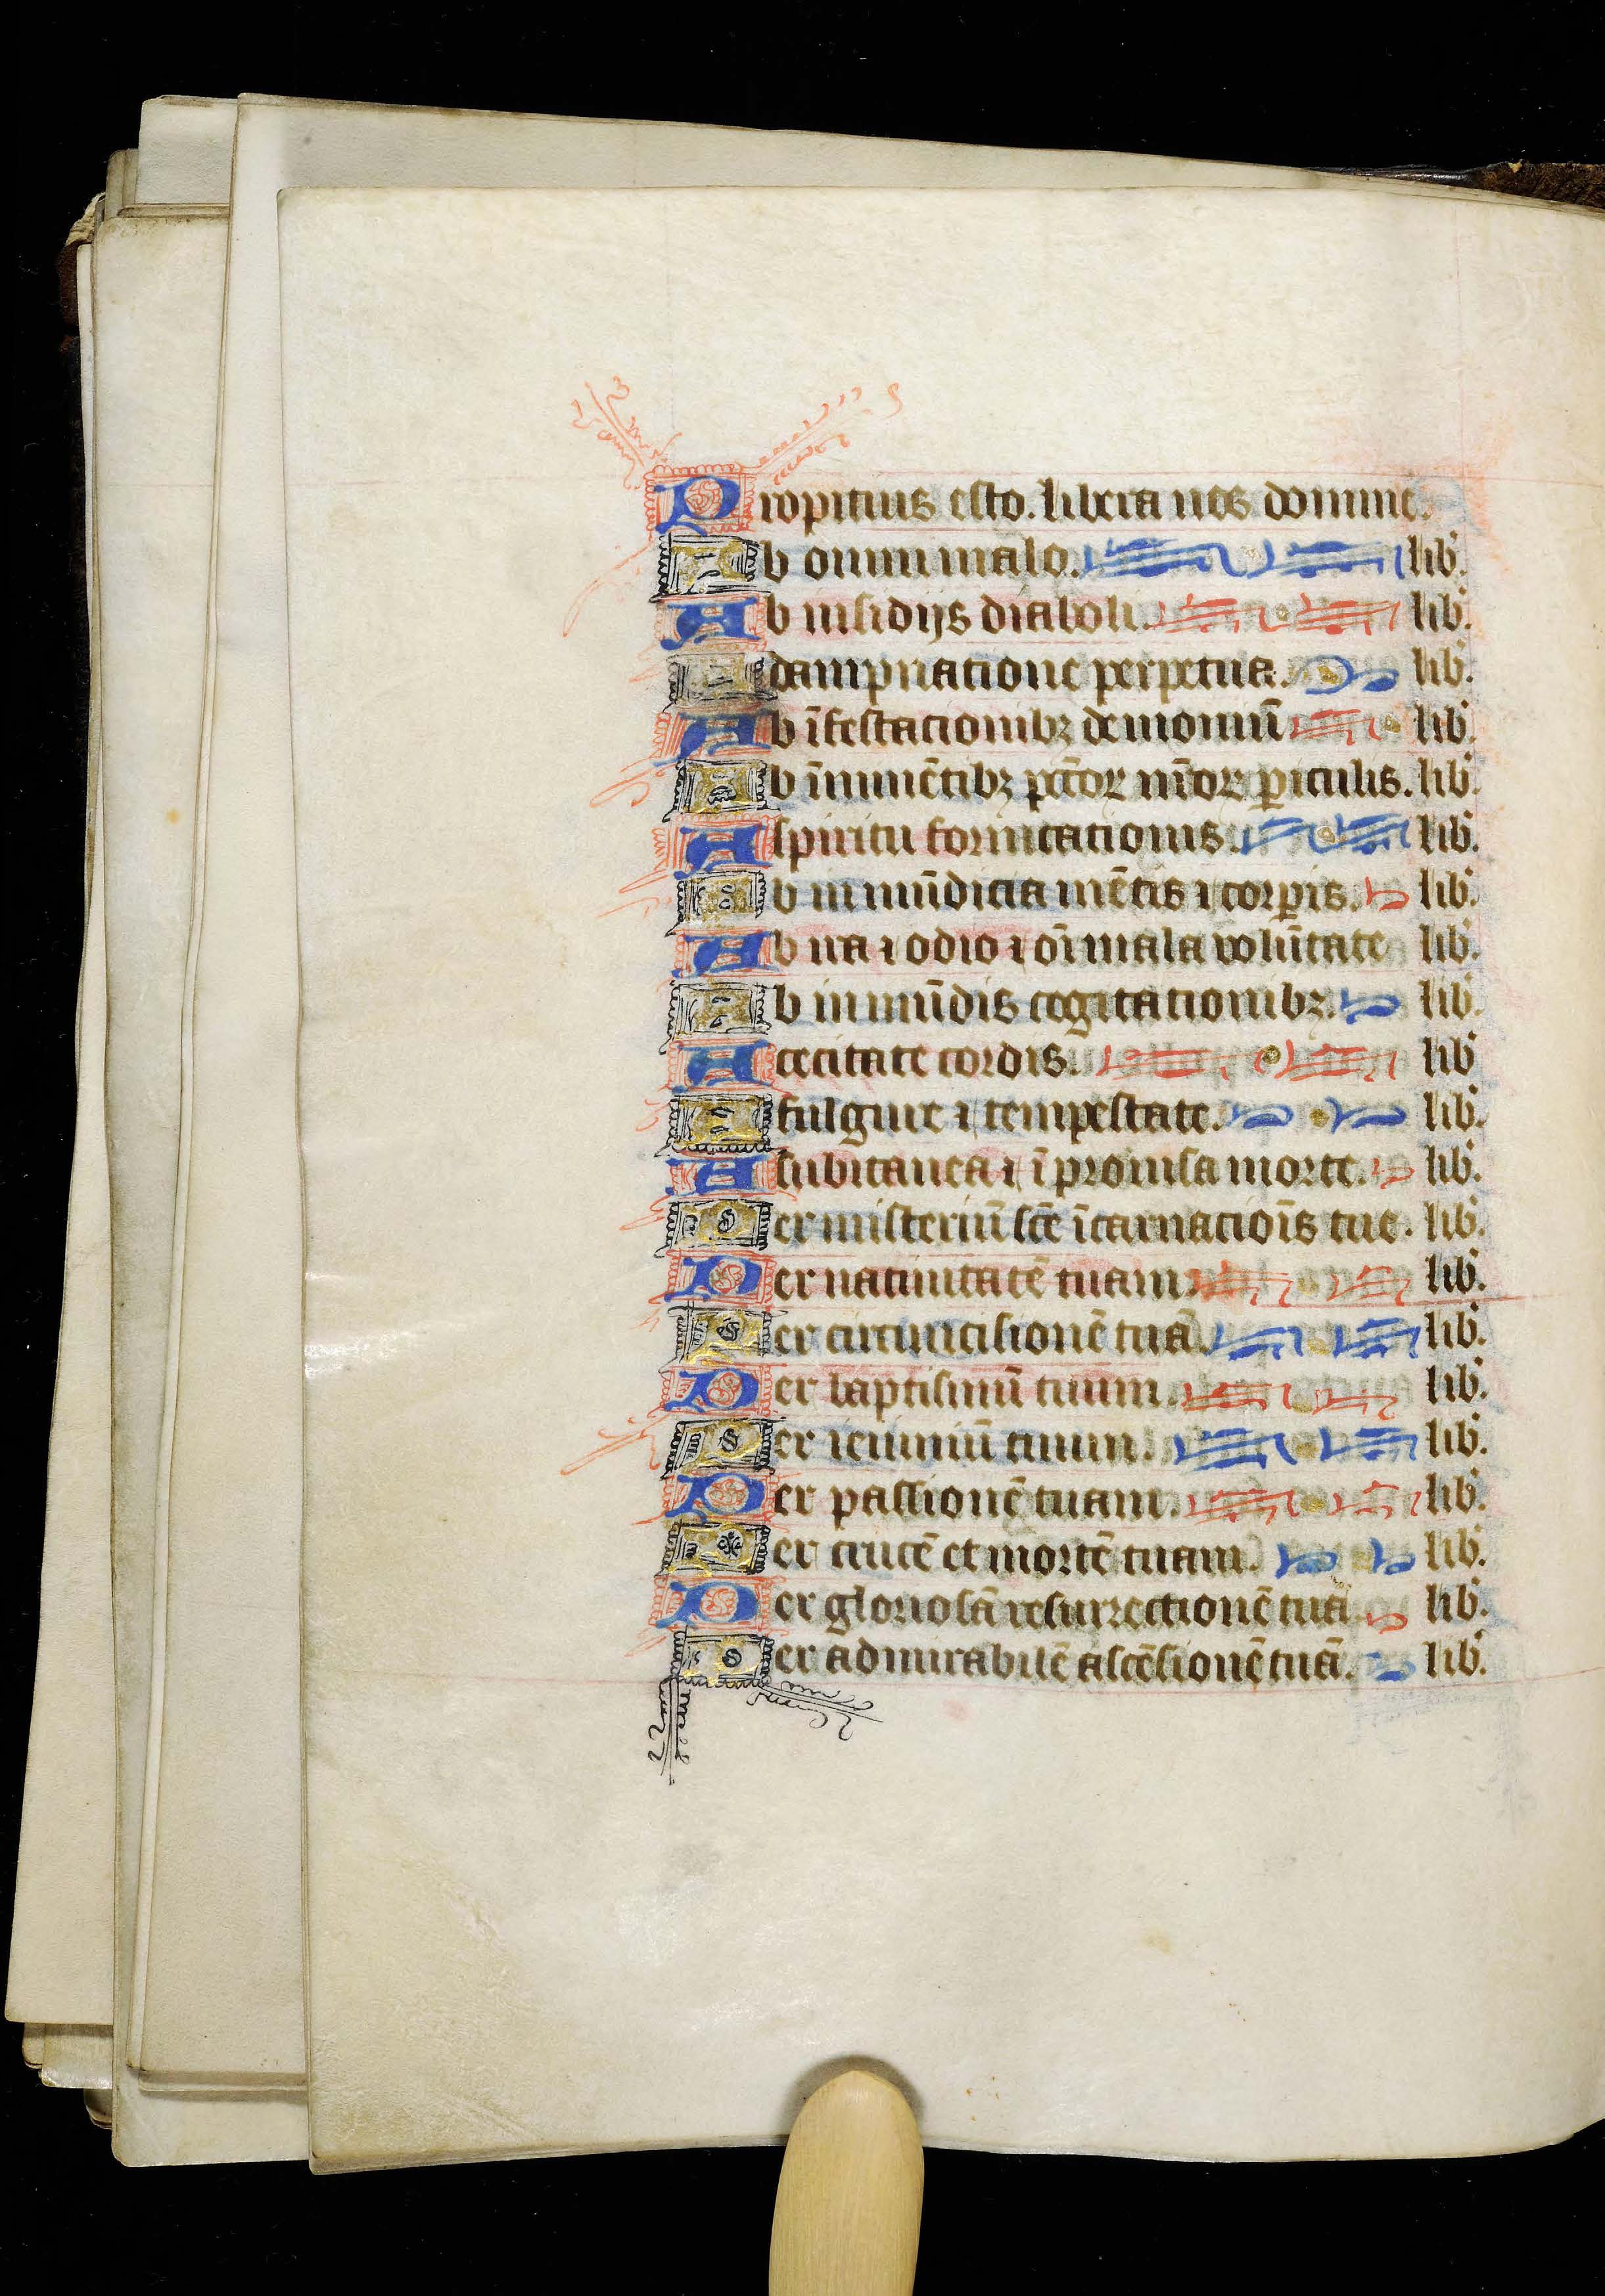 Propitius esto. libera nos domine.
Ab omni malo. lib'.
Ab insidijs diaboli. lib'.
A dampnatione perpetua. lib'.
Ab īfestacionibꝫ demoniū lib'.
Ab īminētibꝫ pctōꝝ nr̄oꝝ ꝑiculis. lib'.
A spiritu fornicationis. lib'.
Ab inmūdicia mētis ⁊ corꝑis. lib'.
Ab ira ⁊ odio ⁊ oī mala volūtate lib'.
Ab inmūdis cogitationibꝫ. lib'.
A cecitate cordis. lib'
A fulgure ⁊ tempestate. lib'.
A subitanea ⁊ īprouisa morte. lib'.
Per misteriū scē īcarnacioīs tue. lib'.
Per natiuitatē tuam. lib'.
Per circuncisionē tuā. lib'.
Per baptismū tuum. lib'.
Per ieiuniū tuum. lib'.
Per passionē tuam. lib'.
Per crucē et mortē tuam. lib'.
Per gloriosā resurrectionē tuā. lib'.
Per admirabilē ascēsionē tuā. lib'.